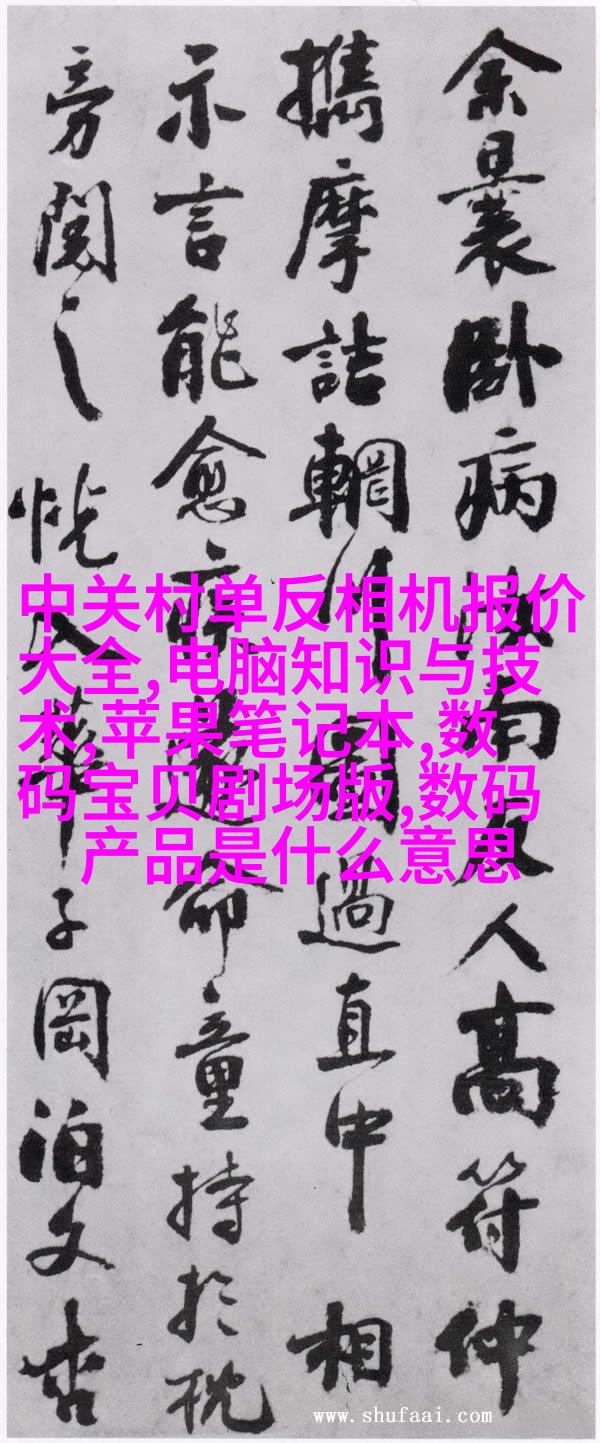 余曩卧病汝南友人高符仲
攜摩詰輞川圖過直中相
示言能愈疾遂命童持於枕
旁閱之恍入華子岡泊文杏
中关村单反相机报价
大全,电脑知识与技
术,苹果笔记本,数
码宝贝剧场版,数码
产品是什么意思
www.shufaai.com